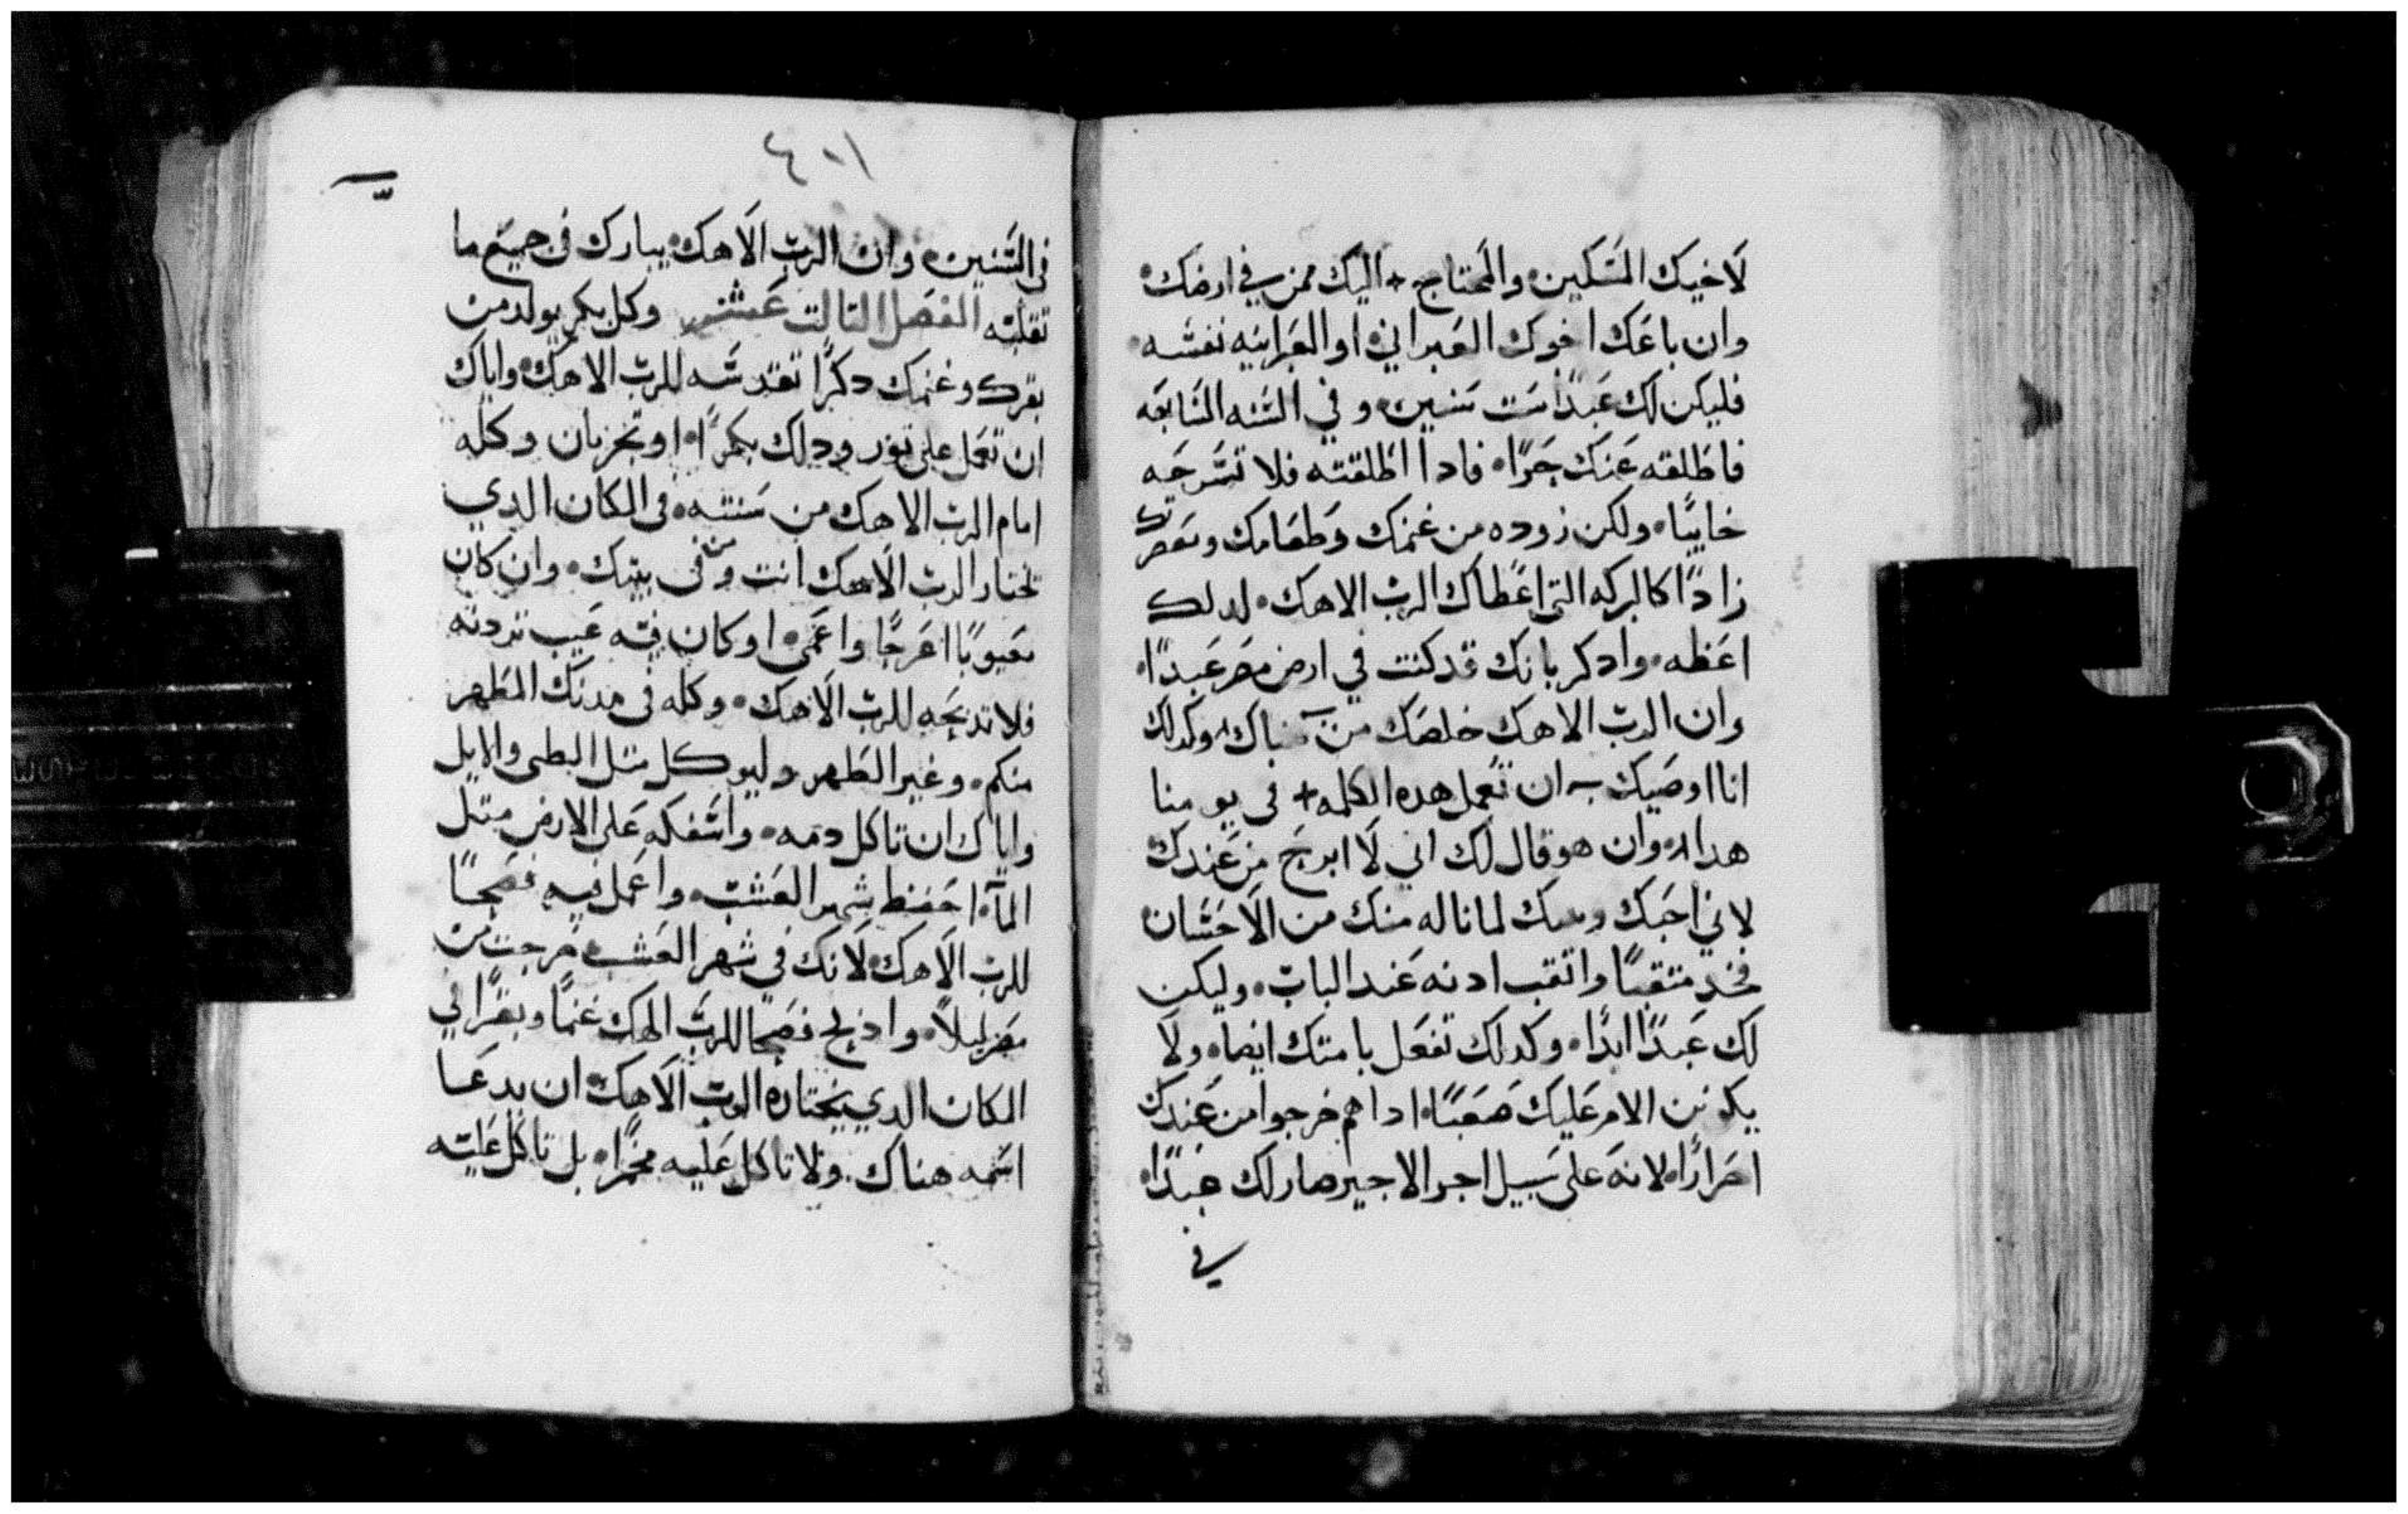 لاخيك المسكين والمحتاج + اليك ممن في ارضك
وان باعك اخوك العبراني او العبرانيه نفسه
فليكن لك عبدًا ست سنين وفي السنه السابعه
فاطلقه عنك حرًا فادا اطلقته فلا تسرحه
خايبًا ولكن زوده من غنمك وطعامك ومعصرتك
زادًا كالبركه التي اعطاك الرب الاهك لدلك
اعظه وادكر بانك قد كنت في ارض مصر عبدًا
وان الرب الاهك خلصك من هناك وكدلك
انا اوصيك به ان تعمل هده الكلمه + في يومنا
هدا وان هو قال لك اني لا ابرح من عندك
لاني احبك وبيتك لما ناله منك من الاحسان
فخد متقبًا واتقب ادنه عند الباب وليكن
لك عبدًا ابدًا وكدلك تفعل بامتك ايضا ولا
يكونن الامر عليك صعبًا ادا هم خرجوا من عندك
احرارًا لانه على سبيل اجر الاجير صار لك عبدًا
في
٤٠١
في السنين وان الرب الاهك يبارك في جميع ما
تقلبه الفصل التالت عشر وكل بكر يولد من
بقرك وغنمك دكرًا تقدسه للرب الاهك واياك
ان تعمل على تور ودلك بكرًا او تجز بان وكله
امام الرب الاهك من سنته في المكان الدي
تختار الرب الاهك انت ومن في بيتك وان كان
معيوبًا اعرجًا واعمى او كان فيه عيب تردته
فلا تدبحه للرب الاهك وكله في مدنك المطهر
منكم وغير الطهر وليوكل متل البطى والايل
واياك ان تاكل دمه واسفكه على الارض متل
المآ احفظ شهر العشب واعمل فيه فصحًا
للرب الاهك لانك في شهر العشب خرجت من
مصر ليلاً وادبح فصحا للرب الهك غنمًا وبقرًا في
المكان الدي يختاره الرب الاهك ان يدعا
اسمه هناك ولا تاكل عليه مخمرًا بل تاكل عليه